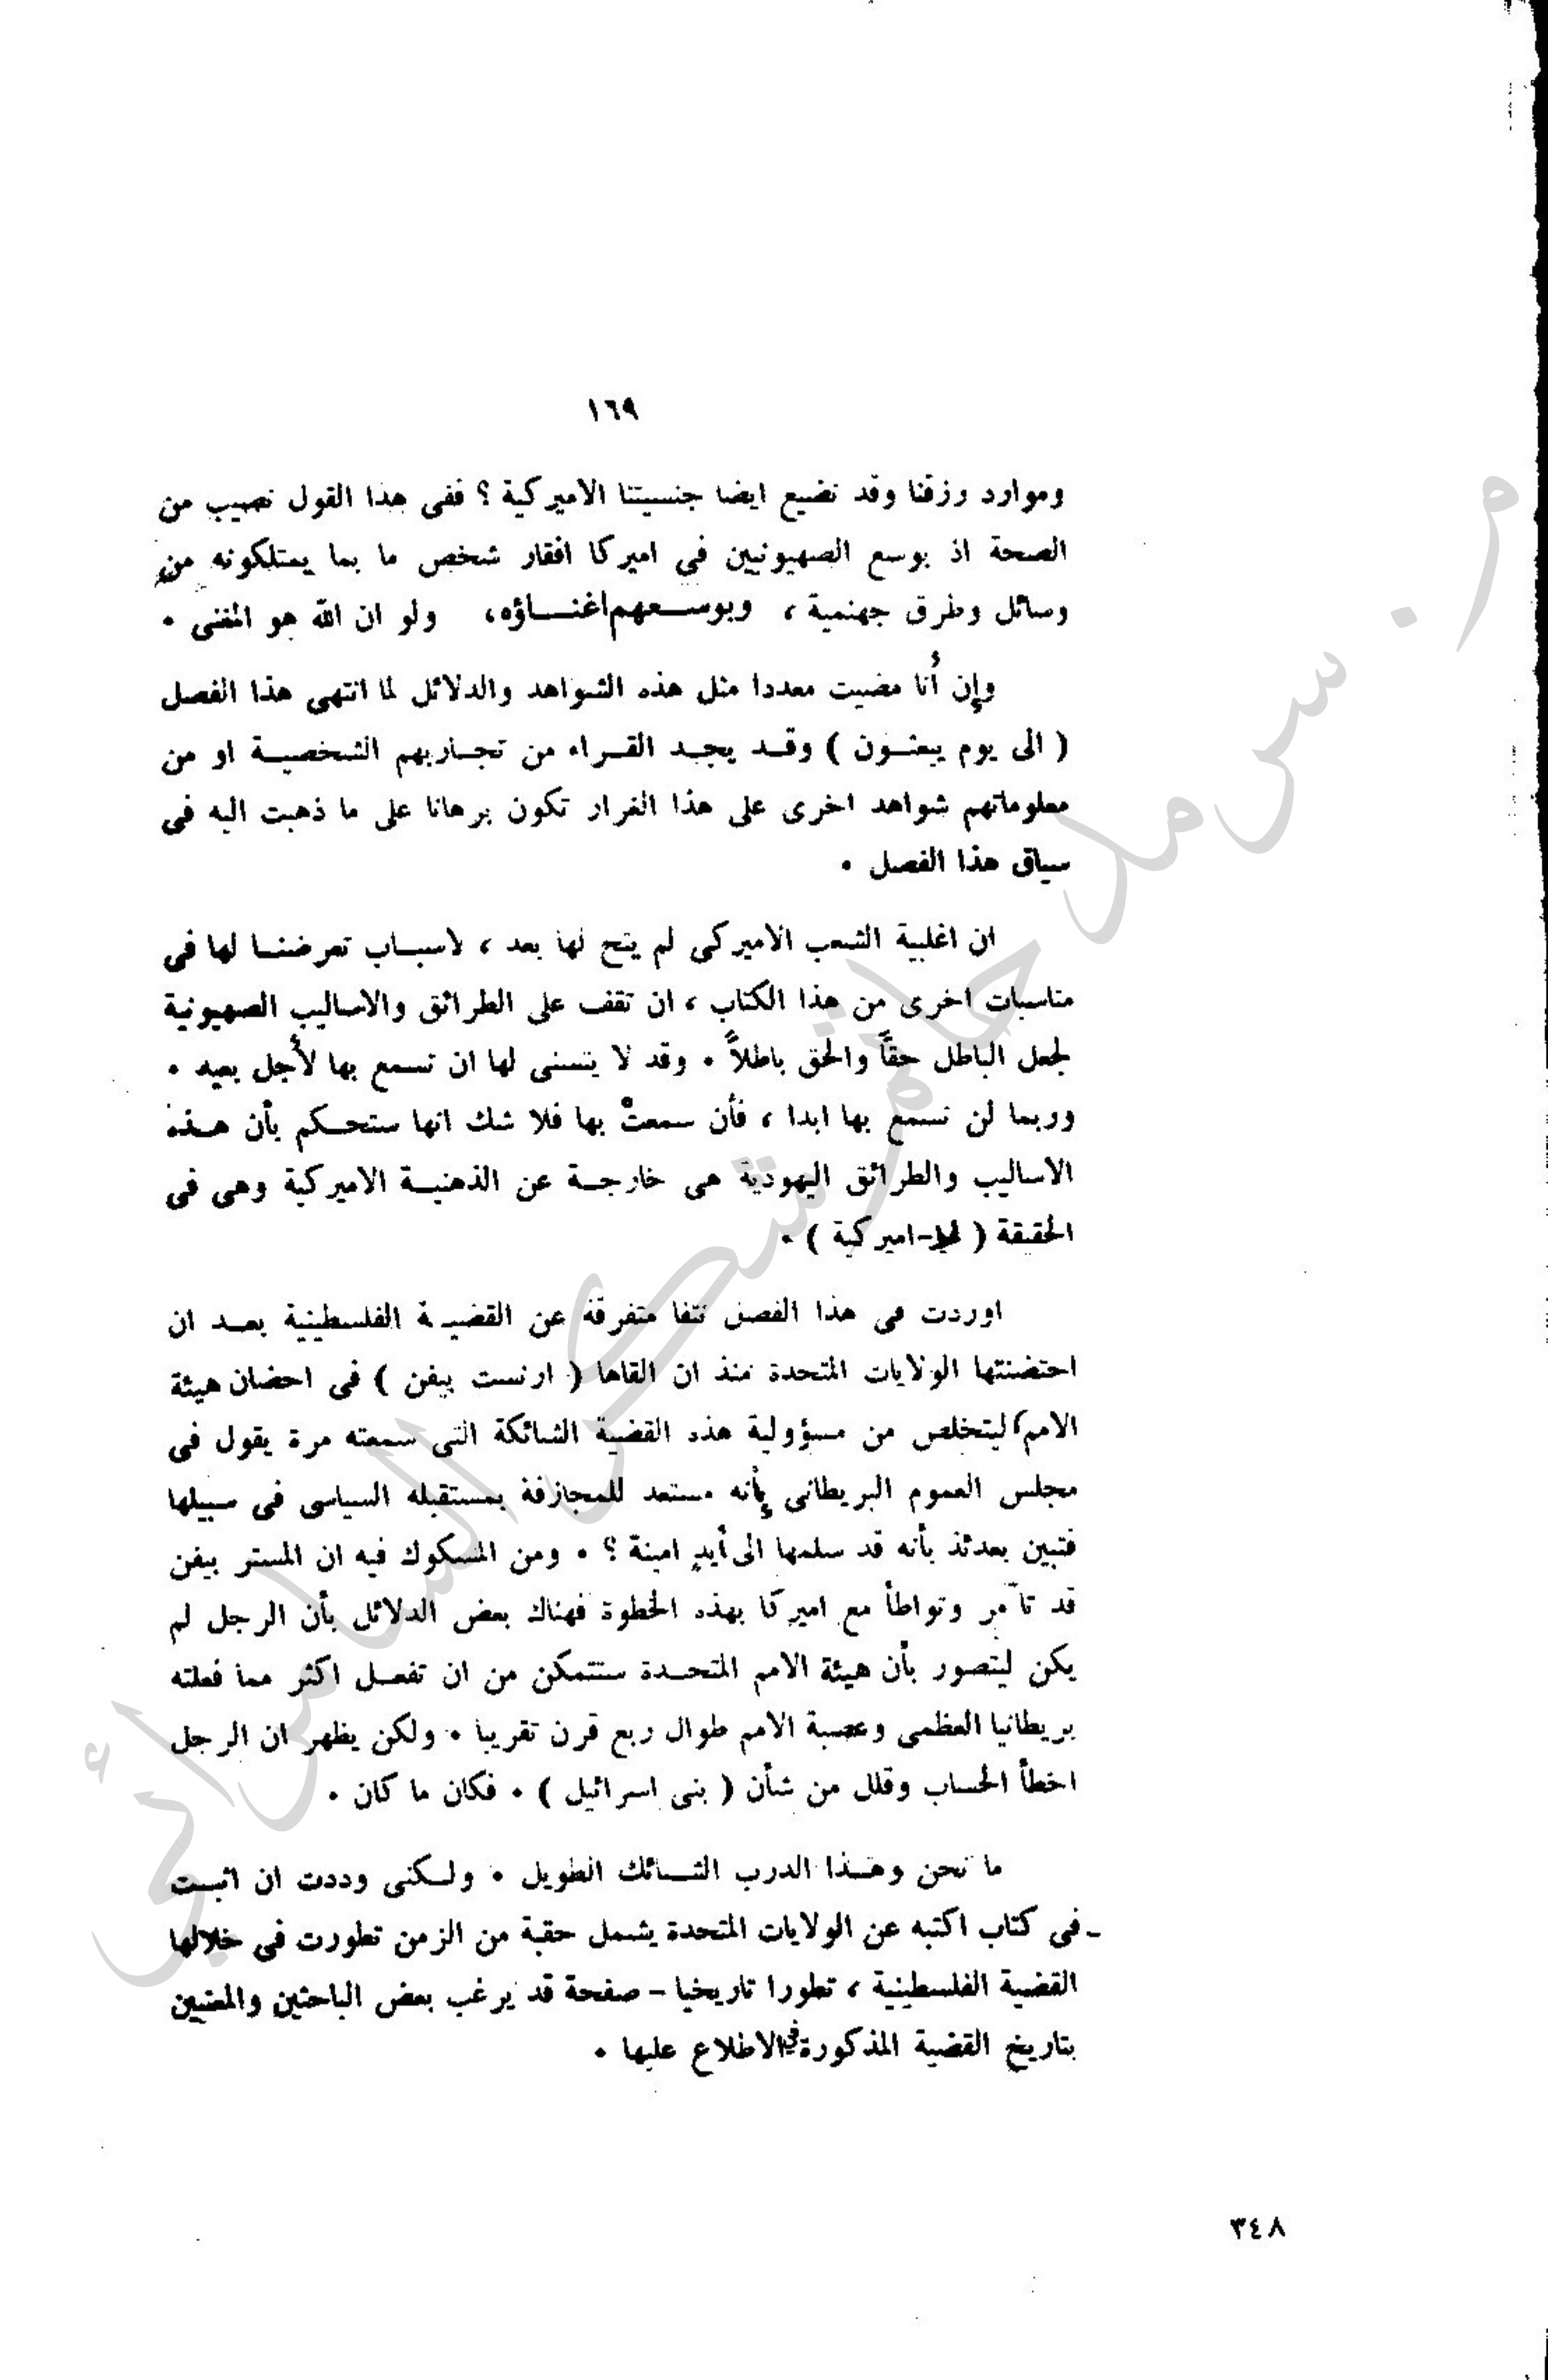 ١٦٩
وموارد رزقنا وقد نضيع ايضا جنسيتنا الاميركية ؟ ففى هذا القول نصيب من
الصحة اذ بوسع الصهيونيين فى اميركا افقار شخص ما بما يمتلكونه من
وسائل وطرق جهنمية ، وبوسعهم اغناؤه، ولو ان الله هو المغنى .
وإن أنا مضيت معددا مثل هذه الشواهد والدلائل لما انتهى هذا الفصل
( الى يوم يبعثون ) وقد يجد القراء من تجاربهم الشخصية او من
معلوماتهم شواهد اخرى على هذا الغرار تكون برهانا على ما ذهبت اليه فى
سياق هذا الفصل .
ان اغلبية الشعب الاميركى لم يتح لها بعد ، لاسباب تعرضنا لها فى
مناسبات اخرى من هذا الكتاب ، ان تقف على الطرائق والاساليب الصهيونية
لجعل الباطل حقاً والحق باطلاً . وقد لا يتسنى لها ان تسمع بها لأجل بعيد .
وربما لن تسمع بها ابدا ، فأن سمعتْ بها فلا شك انها ستحكم بأن هذه
الاساليب والطرائق اليهودية هى خارجة عن الذهنية الاميركية وهى فى
الحقيقة ( لا-اميركية ) .
اوردت فى هذا الفصل نتفا متفرقة عن القضية الفلسطينية بعد ان
احتضنتها الولايات المتحدة منذ ان القاها ( ارنست بيفن ) فى احضان هيئة
الامم، ليتخلص من مسؤولية هذه القضية الشائكة التى سمعته مرة يقول فى
مجلس العموم البريطانى بأنه مستعد للمجازفة بمستقبله السياسى فى سبيلها
فتبين بعدئذ بأنه قد سلمها الى أيدٍ امينة ؟ . ومن المشكوك فيه ان المستر بيفن
قد تآمر وتواطأ مع اميركا بهذه الخطوة فهناك بعض الدلائل بأن الرجل لم
يكن ليتصور بأن هيئة الامم المتحدة ستتمكن من ان تفعل اكثر مما فعلته
بريطانيا العظمى وعصبة الامم طوال ربع قرن تقريبا . ولكن يظهر ان الرجل
اخطأ الحساب وقلل من شأن ( بنى اسرائيل ) . فكان ما كان .
ما نحن وهذا الدرب الشائك الطويل . ولكنى وددت ان اثبت
- فى كتاب اكتبه عن الولايات المتحدة يشمل حقبة من الزمن تطورت فى خلالها
القضية الفلسطينية ، تطورا تاريخيا - صفحة قد يرغب بعض الباحثين والمعنيين
بتاريخ القضية المذكورة فى الاطلاع عليها .
٣٤٨